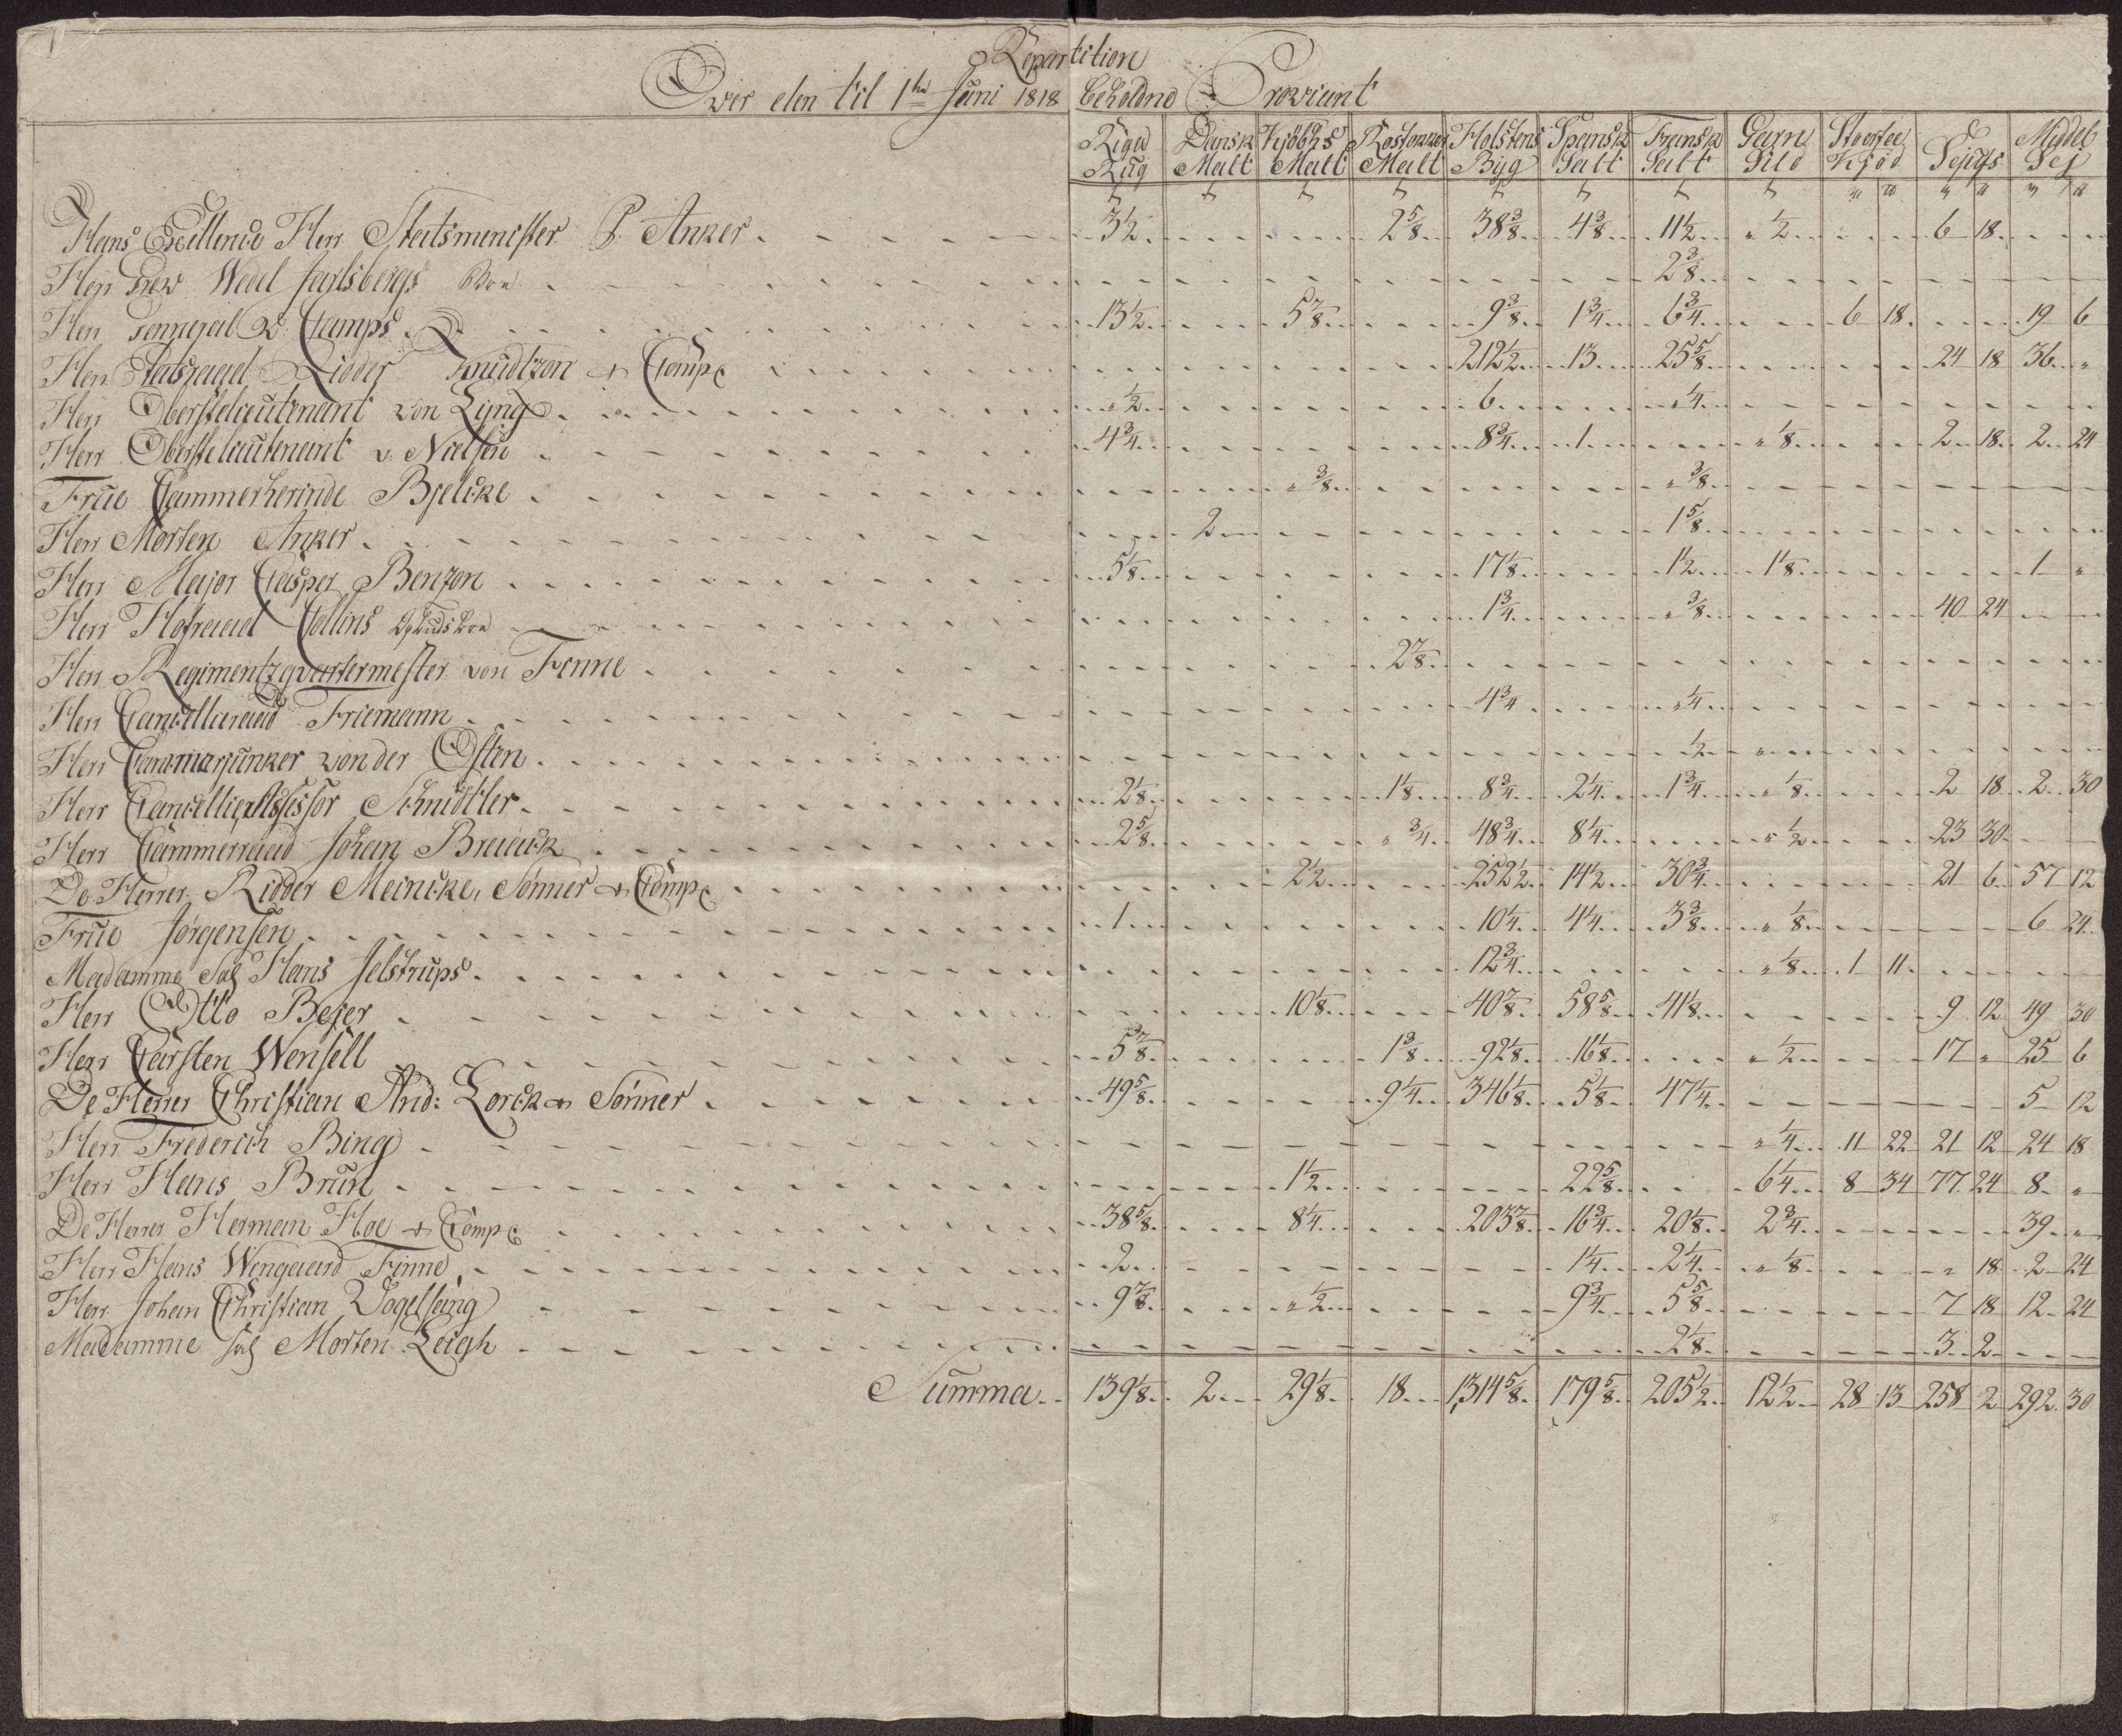 Repartition
Over den til 1ste Juni 1818 beholdne Proviant
Riga Rug | Dansk Malt | Kjøbhs Malt | Rostokker Malt | Holstens Byg | Spansk Salt | Fransk Salt | Garn Sild | Kjød | Sejgs | Middel Sej
Hans Excellence Herr Statsmenister P. Anker 3 1/2 2 5/8 38 3/8 4 3/8 11 1/2 " 1/2 6 18
Herr Grew Wedel Jarlsbergs 2 3/8
Herr 13 1/2 5 7/8 9 3/8 1 3/4 6 3/4 6 18 19 6
Herr Statsraad Ridder Knudtzon & Comp 212 1/2 13 25 5/8 24 18 36 "
Herr Oberstelieutenant von Lyng " 1/2 6 " 1/4
Herr Oberstelieutenant v. Nielsen 4 3/4 8 3/4 1 " 1/8 2 18 2 24
Frue Cammerherinde Bjelcke " 3/8 " 3/8
Herr Morten Anker 2 1 5/8
Herr Major Casper Benzon 5 1/8 17 1/8 1 1/2 1 1/8 1 "
Herr Hofraad Collins 1 3/4 " 3/8 40 24
Herr Regimentzqvartermester von Finne 2 7/8
Herr Cancelliraad Friemann 4 3/4 " 1/4
Herr Cammerjunker von der Osten 1/2 "
Herr Cancellie Assessor Schnidtler 2 1/8 1 1/8 8 3/4 2 1/4 1 3/4 " 1/8 2 18 2 30
Herr Cammerraad Johan Breaick 2 5/8 " 3/4 48 3/4 8 1/4 " 1/2 23 30
De Herrer Ridder Meincke, Sønner & Comp 2 1/2 252 1/2 14 1/2 30 3/4 21 6 57 12
Frue Jørgensen 1 10 1/4 4 1/4 3 3/8 " 1/8 6 24
Madamme Sal Hans Jelstrups 12 3/4 " 1/8 1 11
Herr Otto Bejer 10 1/8 40 7/8 58 5/8 41 1/8 9 12 49 30
Herr Carsten Wensell 5 7/8 1 3/8 92 1/8 16 1/8 " 1/2 17 " 25 6
De Herrer Christian And: Lorck & Sønner 49 5/8 9 1/4 346 1/8 5 1/8 47 1/4 5 12
Herr Frederich Bing " 1/4 11 22 21 12 24 18
Herr Hans Brun 1 1/2 22 5/8 6 1/4 8 34 77 24 8 "
De Herrer Herman Hoe & Comp 38 5/8 8 1/4 203 7/8 16 3/4 20 1/8 2 3/4 39 "
Herr Hans Wingaard Finne 2 1 1/4 2 1/4 " 1/8 " 18 2 24
Herr Johan Christian Vogelsang 9 7/8 " 1/2 9 3/4 5 5/8 7 18 12 24
Madamme sal Morten Leigh 2 1/8 3 2
Summa 139 1/8 2 29 1/8 18 1314 5/8 179 5/8 205 1/2 12 1/2 28 13 258 2 292 30